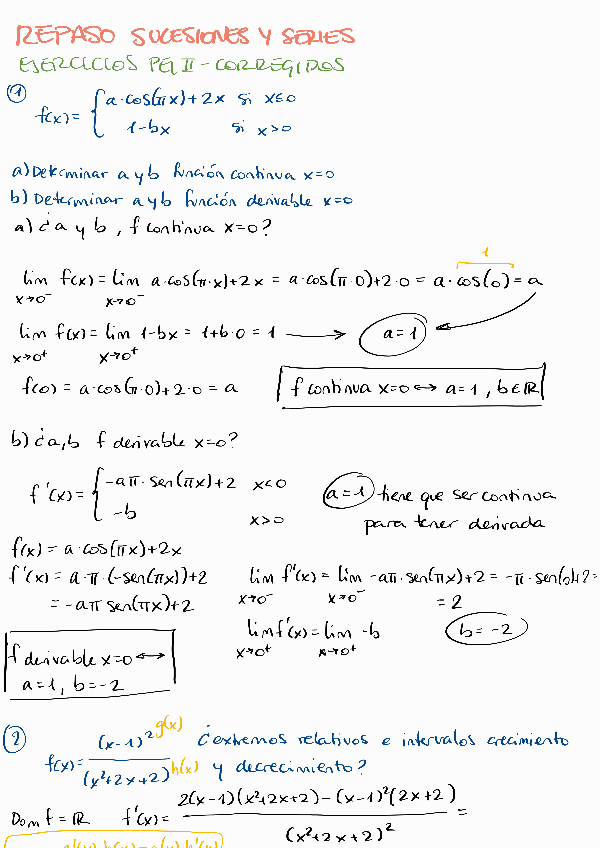 REPASO SUCESIONES Y SERIES
EJERCICIOS PEL II - CORREGIDOS
① f(x) = { a·cos(πx)+2x si x≤0
1-bx si x>0
a) Determinar a y b función continua x=0
b) Determinar a y b función derivable x=0
a) ¿a y b, f continua x=0?
1
lim f(x) = lim a·cos(π·x)+2x = a·cos(π·0)+2·0 = a·cos(0) = a
x→0⁻ x→0⁻
lim f(x) = lim 1-bx = 1+b·0 = 1 → a=1
x→0⁺ x→0⁺
f(0) = a·cos(π·0)+2·0 = a
f continua x=0 ↔ a=1, b∈ℝ
b) ¿a,b f derivable x=0?
f'(x) = { -aπ·sen(πx)+2 x<0
-b x>0
a=1 tiene que ser continua
para tener derivada
f(x) = a·cos(πx)+2x
f'(x) = a·π·(-sen(πx))+2
= -aπ sen(πx)+2
lim f'(x) = lim -aπ·sen(πx)+2 = -π·sen(0)+2=
x→0⁻ x→0⁻ = 2
lim f'(x) = lim -b b=-2
x→0⁺ x→0⁺
f derivable x=0 ↔
a=1, b=-2
② f(x) = (x-1)² g(x) / (x²+2x+2) h(x) ¿extremos relativos e intervalos crecimiento
y decrecimiento?
Dom f = ℝ f'(x) = 2(x-1)(x²+2x+2)-(x-1)²(2x+2) / (x²+2x+2)² =